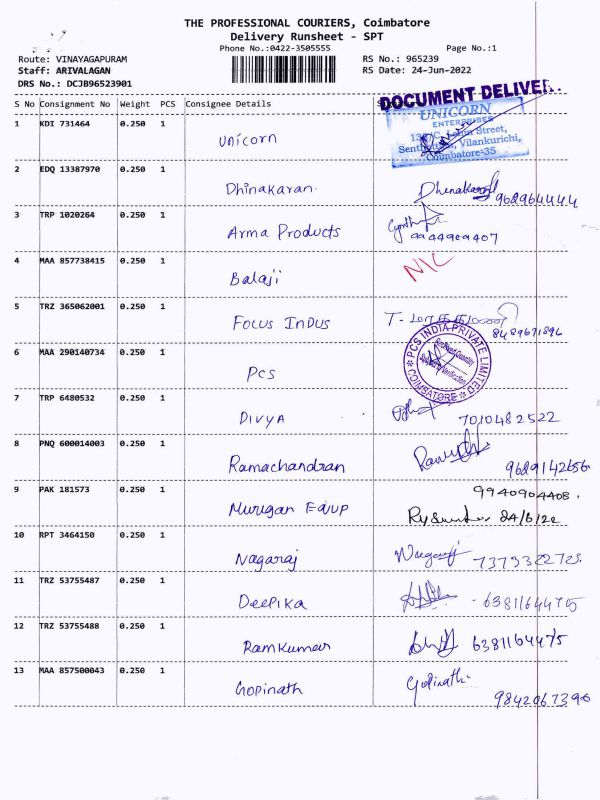 THE PROFESSIONAL COURIERS, Coimbatore
Delivery Runsheet - SPT
Phone No.:0422-3505555 Page No.:1
Route: VINAYAGAPURAM RS No.: 965239
Staff: ARIVALAGAN RS Date: 24-Jun-2022
DRS No.: DCJB96523901
DOCUMENT DELIVER
S No Consignment No Weight PCS Consignee Details
UNICORN
ENTERPRISES
Street,
Vilankurichi,
Coimbatore-35
1 KDI 731464 0.250 1 Unicorn
2 EDQ 13387970 0.250 1 Dhinakaran. 962964444
3 TRP 1020264 0.250 1 Arma Products 9944909407
4 MAA 857738415 0.250 1 Balaji N/C
5 TRZ 365062001 0.250 1 Focus Indus 8489671896
6 MAA 290140734 0.250 1 Pcs
PCS INDIA PRIVATE LIMITED
COIMBATORE
7 TRP 6480532 0.250 1 Divya 7010482522
8 PNQ 600014003 0.250 1 Ramachandran 9629142656
9 PAK 181573 0.250 1 Murugan Equp 9940904408.
24/6/22
10 RPT 3464150 0.250 1 Nagaraj 7373322723
11 TRZ 53755487 0.250 1 Deepika 6381164475
12 TRZ 53755488 0.250 1 Ramkumar 6381164475
13 MAA 857500043 0.250 1 Gopinath Gopinath
9842067396